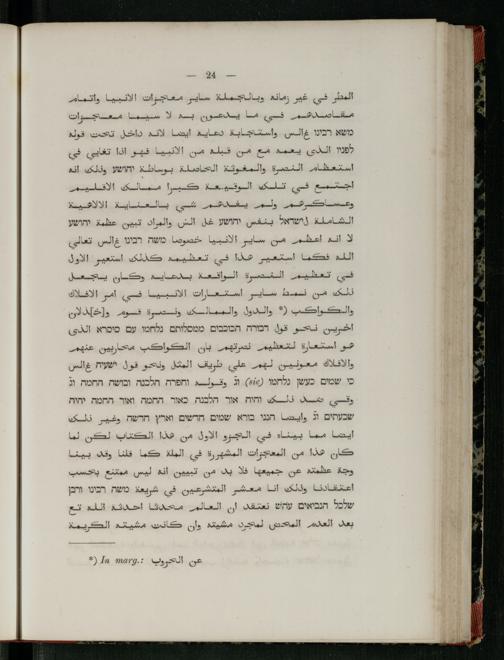 — 24 —
المطر في غير زمانه وبالجملة ساير معجزات الانبيا واتمام
مقاصدهم في ما يدعون به لا سيما معجزات
משא רבינו ع'الس واستجابة دعايه ايضا لانه داخل تحت قوله
לפניו الذى يعمه مع من قبله من الانبيا فهو اذا تغايى في
استعظام النصرة والمغوثة الحاصلة بوساطة יהושע وذلك انه
اجتمع في تلك الوقيعة كبرا ممالك الاقليم
وعساكرهم ولم يفدهم شي بالعناية الالاهية
الشاملة لישראל بنفس יהושע والمراد تبين عظمة יהושע
لا انه اعظم من ساير الانبيا خصوصا משה רבינו ع'الس تعالي
الله فكما استعير هذا في تعظيمه كذلك استعير الاول
في تعظيم النصرة الواقعة بدعايه وكان يجعل
ذلك من نمط ساير استعارات الانبيا في امر الافلاك
والكواكب (* والدول والممالك ونصرة قوم و[خ]ذلان
اخرين نحو قول דבורה הכוכבים ממסלותם נלחמו עם סיסרא الذى
هو استعارة لتعظيم نصرتهم بان الكواكب محاربين عنهم
والافلاك معونين لهم علي طريق المثل ونحو قول ישעיה ع'الس
כי שמים כעשן נלחמו (sic) וג' وقوله וחפרה הלבנה ובושה החמה וג'
وفي ضد ذلك והיה אור הלבנה כאור החמה ואור החמה יהיה
שבעתים וג' وايضا הנני בורא שמים חדשים וארץ חדשה وغير ذلك
ايضا مما بيناه في الجزو الاول من هذا الكتاب لكن لما
كان هذا من المعجزات المشهورة في الملة كما قلنا وقد بينا
وجه عظمته عن جميعها فلا بد من تبيين انه ليس ممتنع بحسب
اعتقادنا وذلك انا معشر المتشرعين في شريعة משה רבינו ורבן
שלכל הנביאים نعتقد ان العالم محدثا احدثه الله تع
بعد العدم المحض لمجرد مشيته وان كانت مشيته الكريمة
*) In marg.: عن الحروب